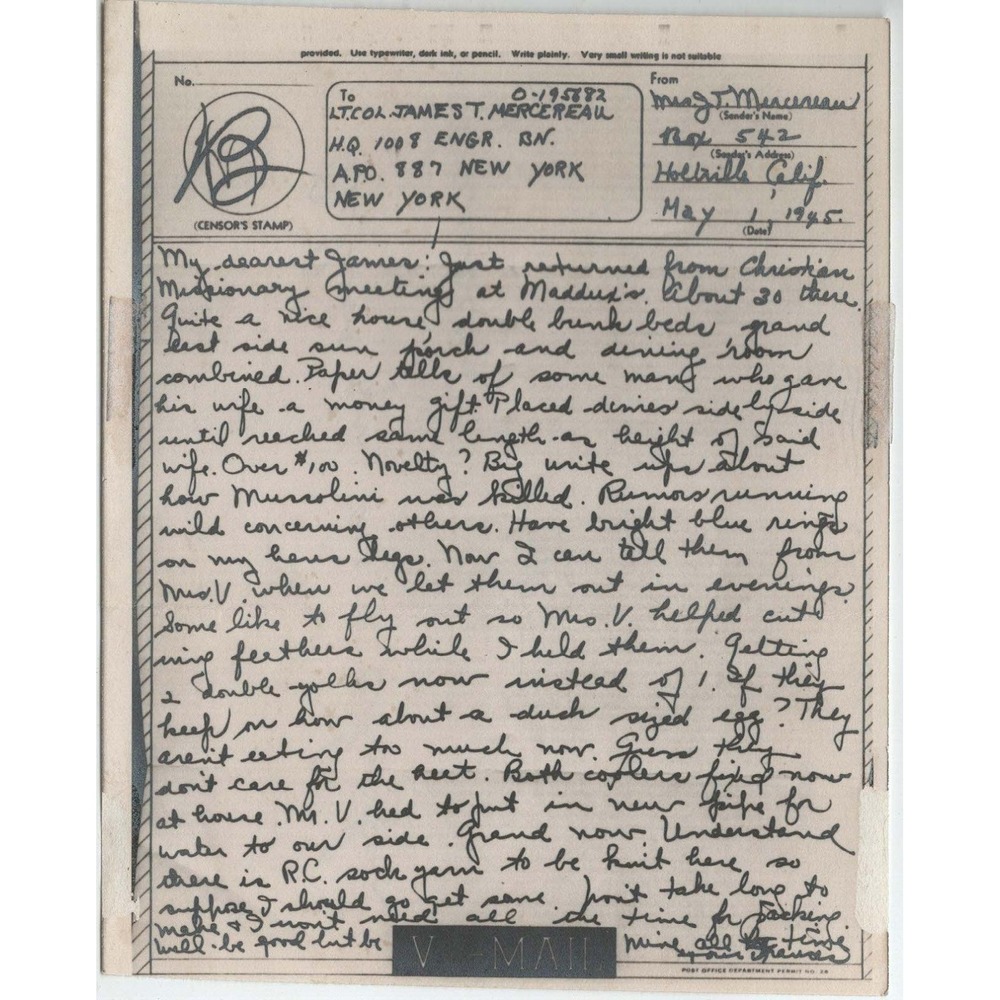 provided. Use typewriter, dark ink, or pencil. Write plainly. Very small writing is not suitable
No.
(CENSOR'S STAMP)
To
O-195682
LT. COL. JAMES T. MERCEREAU
H.Q. 1008 ENGR. BN.
A.P.O. 887 NEW YORK
NEW YORK
From
Mrs J. T. Mercereau
(Sender's Name)
Box 542
(Sender's Address)
Holtville, Calif.
May 1, 1945.
(Date)
My dearest James: Just returned from Christian
Missionary meeting at Maddux's. About 30 there.
Quite a nice house, double bunk beds, grand
east side sun porch and dining room
combined. Paper tells of some man who gave
his wife a money gift. Placed dimes side by side
until reached same length as height of said
wife. Over $100. Novelty? Big write ups about
how Mussolini was killed. Rumors running
wild concerning others. Have bright blue rings
on my hens legs. Now I can tell them from
Mrs. V. when we let them out in evenings.
Some like to fly out so Mrs. V. helped cut
wing feathers while I held them. Getting
2 double yolks now instead of 1. If they
keep on how about a duck sized egg? They
aren't eating too much now. Guess they
don't care for the heat. Both coolers fixed now
at house. Mr. V. had to put in new pipe for
water to our side. Grand now. Understand
there is R.C. sock yarn to be knit here so
suppose I should go get some. Won't take long to
make & I won't need all the time for packing.
Will be good but be
mine all the time
Your Frances
V-MAIL
POST OFFICE DEPARTMENT PERMIT NO. 28